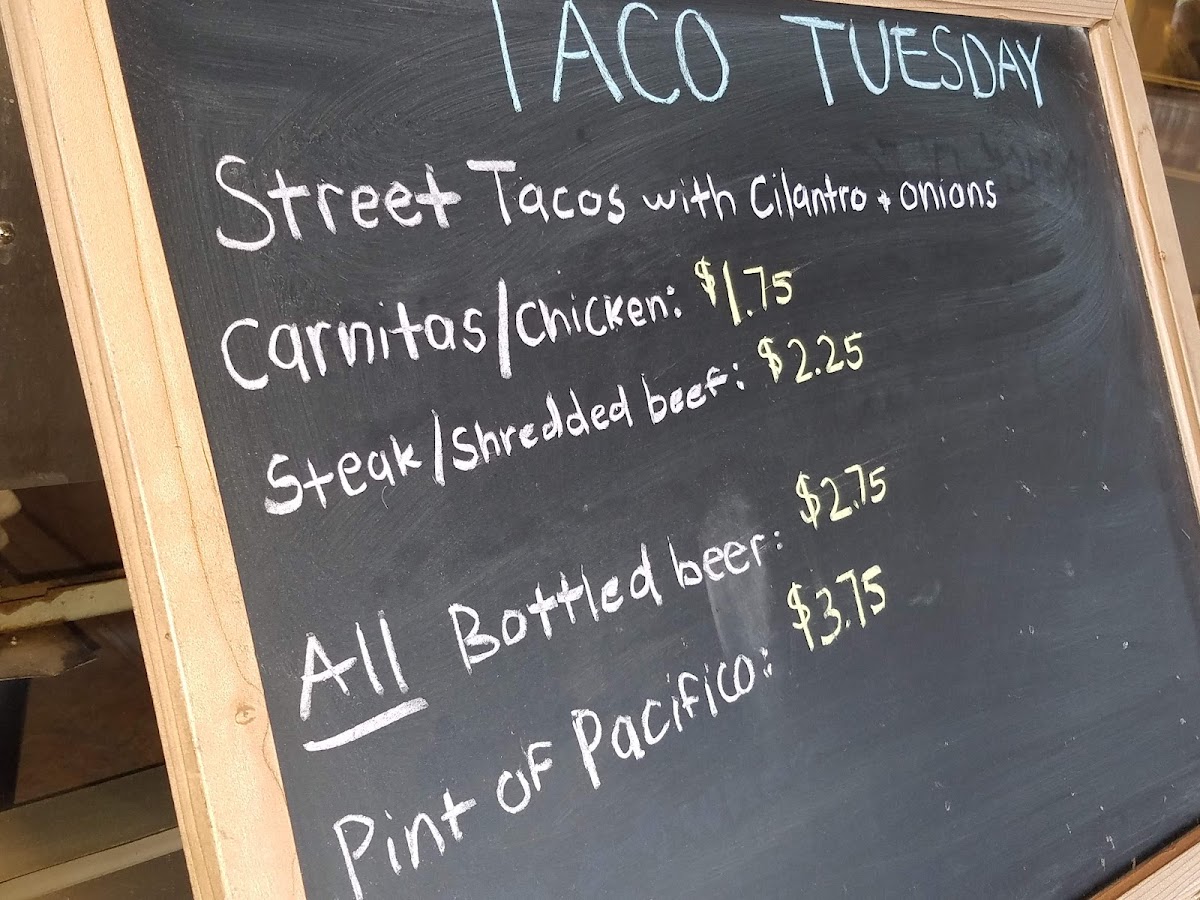 TACO TUESDAY
Street Tacos with Cilantro + onions
Carnitas/Chicken: $1.75
Steak/Shredded beef: $2.25
All Bottled beer: $2.75
Pint of Pacifico: $3.75